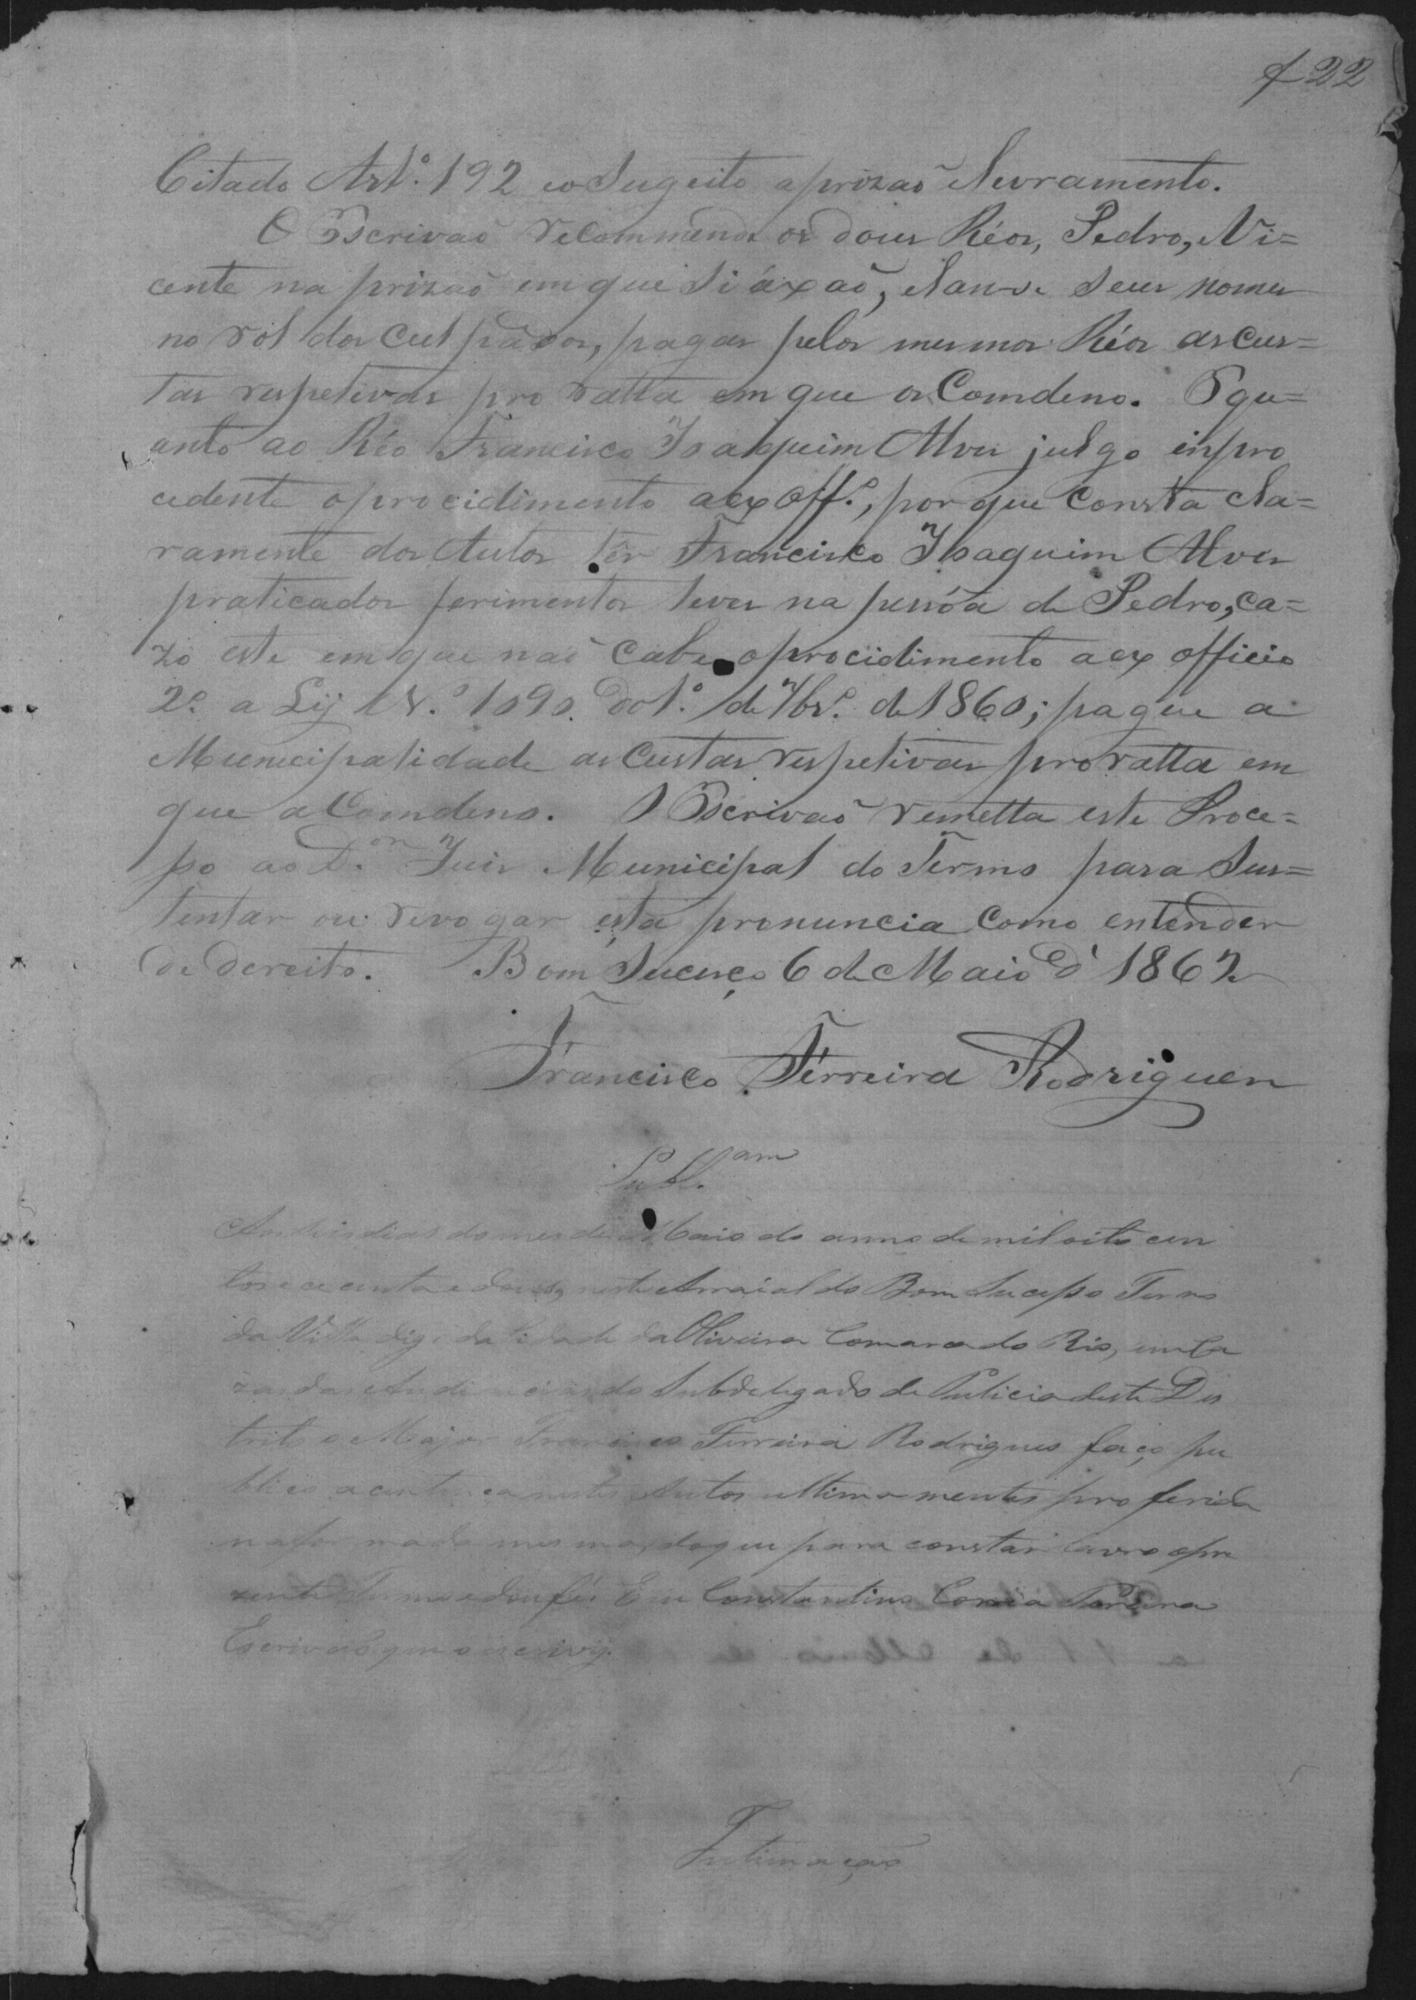 f 22
Citado Art.º 192 eo Sugeito aprizaõ eLivramento.
O Escrivaõ recommenda os dous Réos, Pedro, eVi=
cente na prizaõ em que Si áxaõ, elanse Seus nomes
no rol dos Culpados, pagas pelos mesmos Réos ascus=
tas respetivas pro ratta em que os Comdeno. Equ=
anto ao Réo Francisco Joaquim Alves julgo inpro
cedente oprocidimento aex Off.º, por que Consta Cla=
ramente dos Autos têr Francisco Joaquim Alves
praticados ferimentos leves na pessôa de Pedro, ca=
zo este em que naõ Cabe oprocidimento aex officio
2.º a Lij N.º 1090. do 1.º de 7br.º de 1860; pague a
Municipalidade as Custas respetivas pro ratta em
que aComdeno. O Escrivaõ remetta este Proce=
sso ao D.or Juis Municipal do Termo para Sus=
tentar ou revogar esta pronuncia Como entender
de dereito. Bom Sucurço 6 de Maio d' 1862
Francisco Ferreira Rodrigues
Publ.am
Aos seis dias do mes de Maio do anno de mil oito cen
tos e cecenta e dous, neste Arraial do Bom Sucesso Termo
da Villa digo da Cidade da Oliveira Comarca do Rio, em Ca
zas das Audiencias do Subdelegado de Pulicia deste Dis
trito o Major Francisco Ferreira Rodrigues faço pu
blico a centença nestes Autos ultimamentes proferida
na forma da mesma, do que para constar lavro opre
zente Termo e dou fé. Eu Constantino Corrêa Pereira
Escrivaõ que o escrivy.
Intimação